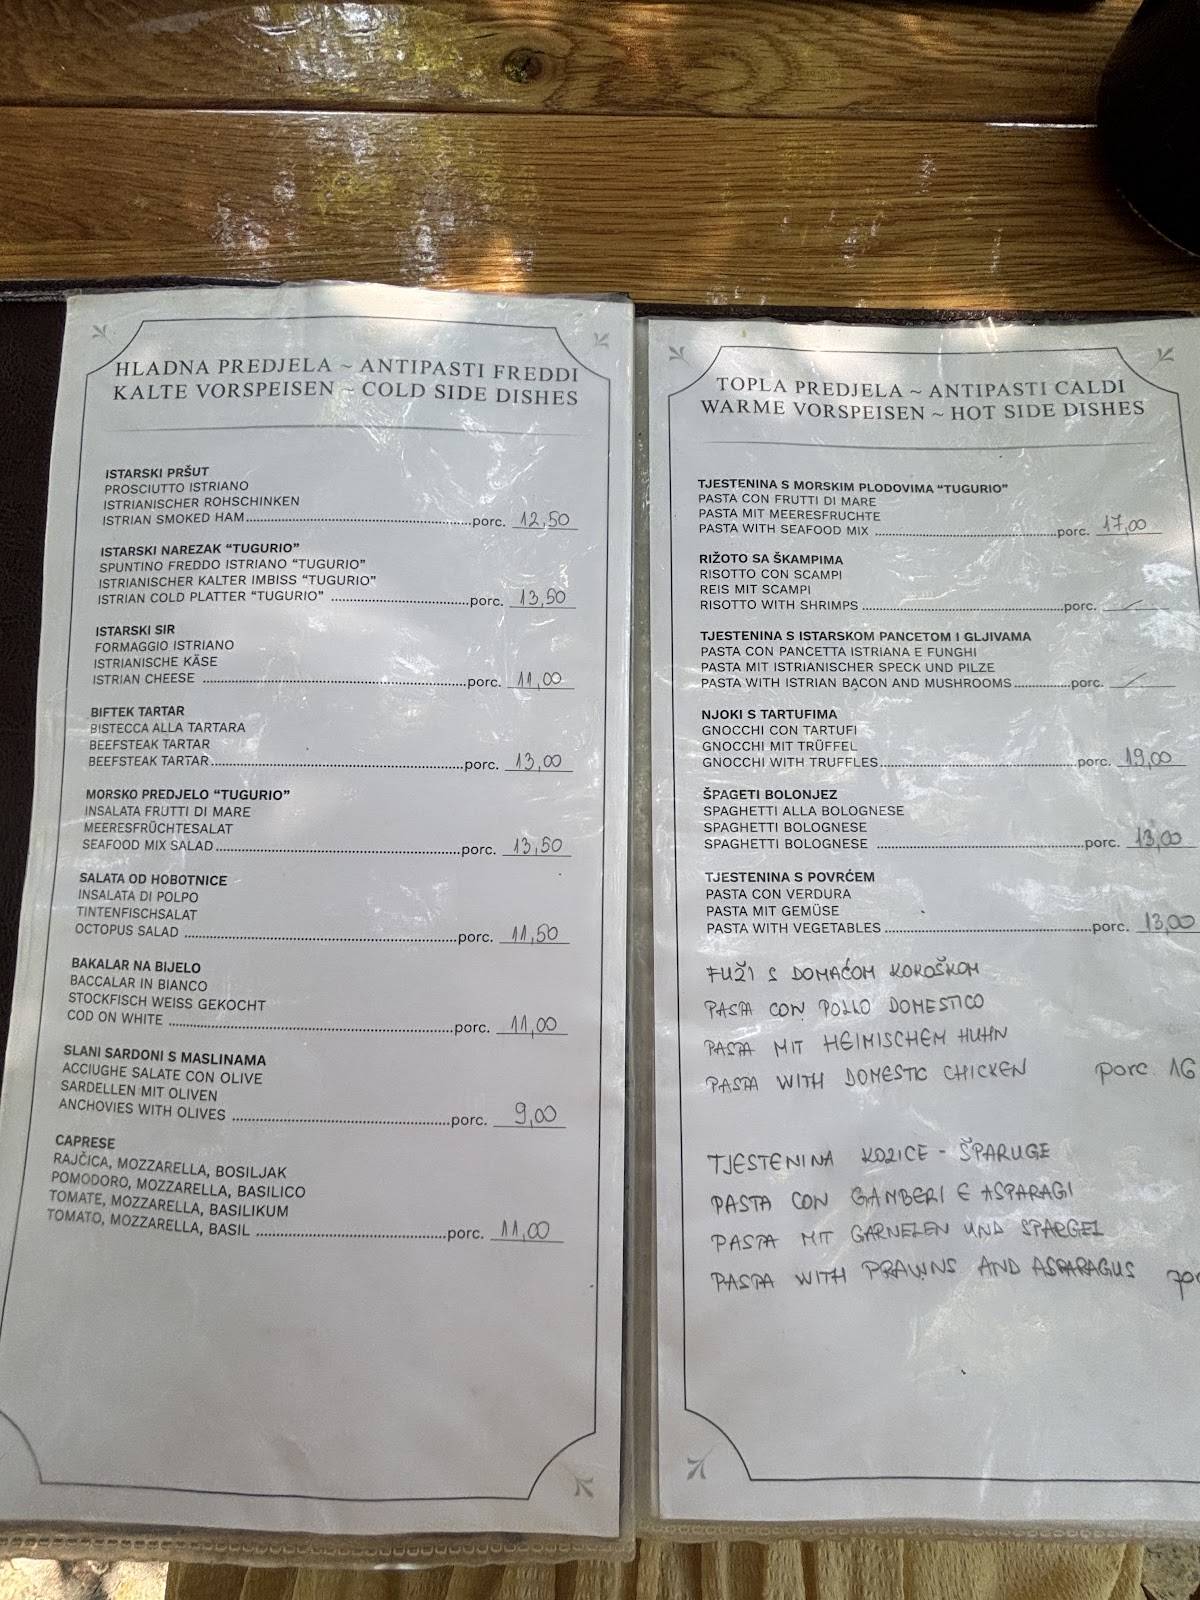 HLADNA PREDJELA ~ ANTIPASTI FREDDI
KALTE VORSPEISEN ~ COLD SIDE DISHES
ISTARSKI PRŠUT
PROSCIUTTO ISTRIANO
ISTRIANISCHER ROHSCHINKEN
ISTRIAN SMOKED HAM porc. 12,50
ISTARSKI NAREZAK “TUGURIO”
SPUNTINO FREDDO ISTRIANO “TUGURIO”
ISTRIANISCHER KALTER IMBISS “TUGURIO”
ISTRIAN COLD PLATTER “TUGURIO” porc. 13,50
ISTARSKI SIR
FORMAGGIO ISTRIANO
ISTRIANISCHE KÄSE
ISTRIAN CHEESE porc. 11,00
BIFTEK TARTAR
BISTECCA ALLA TARTARA
BEEFSTEAK TARTAR
BEEFSTEAK TARTAR porc. 13,00
MORSKO PREDJELO “TUGURIO”
INSALATA FRUTTI DI MARE
MEERESFRÜCHTESALAT
SEAFOOD MIX SALAD porc. 13,50
SALATA OD HOBOTNICE
INSALATA DI POLPO
TINTENFISCHSALAT
OCTOPUS SALAD porc. 11,50
BAKALAR NA BIJELO
BACCALAR IN BIANCO
STOCKFISCH WEISS GEKOCHT
COD ON WHITE porc. 11,00
SLANI SARDONI S MASLINAMA
ACCIUGHE SALATE CON OLIVE
SARDELLEN MIT OLIVEN
ANCHOVIES WITH OLIVES porc. 9,00
CAPRESE
RAJČICA, MOZZARELLA, BOSILJAK
POMODORO, MOZZARELLA, BASILICO
TOMATE, MOZZARELLA, BASILIKUM
TOMATO, MOZZARELLA, BASIL porc. 11,00
TOPLA PREDJELA ~ ANTIPASTI CALDI
WARME VORSPEISEN ~ HOT SIDE DISHES
TJESTENINA S MORSKIM PLODOVIMA “TUGURIO”
PASTA CON FRUTTI DI MARE
PASTA MIT MEERESFRUCHTE
PASTA WITH SEAFOOD MIX porc. 17,00
RIŽOTO SA ŠKAMPIMA
RISOTTO CON SCAMPI
REIS MIT SCAMPI
RISOTTO WITH SHRIMPS porc. /
TJESTENINA S ISTARSKOM PANCETOM I GLJIVAMA
PASTA CON PANCETTA ISTRIANA E FUNGHI
PASTA MIT ISTRIANISCHER SPECK UND PILZE
PASTA WITH ISTRIAN BACON AND MUSHROOMS porc. /
NJOKI S TARTUFIMA
GNOCCHI CON TARTUFI
GNOCCHI MIT TRÜFFEL
GNOCCHI WITH TRUFFLES porc. 19,00
ŠPAGETI BOLONJEZ
SPAGHETTI ALLA BOLOGNESE
SPAGHETTI BOLOGNESE
SPAGHETTI BOLOGNESE porc. 13,00
TJESTENINA S POVRĆEM
PASTA CON VERDURA
PASTA MIT GEMÜSE
PASTA WITH VEGETABLES porc. 13,00
FUŽI S DOMAĆOM KOKOŠKOM
PASTA CON POLLO DOMESTICO
PASTA MIT HEIMISCHEM HUHN
PASTA WITH DOMESTIC CHICKEN porc. 16
TJESTENINA KOZICE - ŠPARUGE
PASTA CON GAMBERI E ASPARAGI
PASTA MIT GARNELEN UND SPARGEL
PASTA WITH PRAWNS AND ASPARAGUS